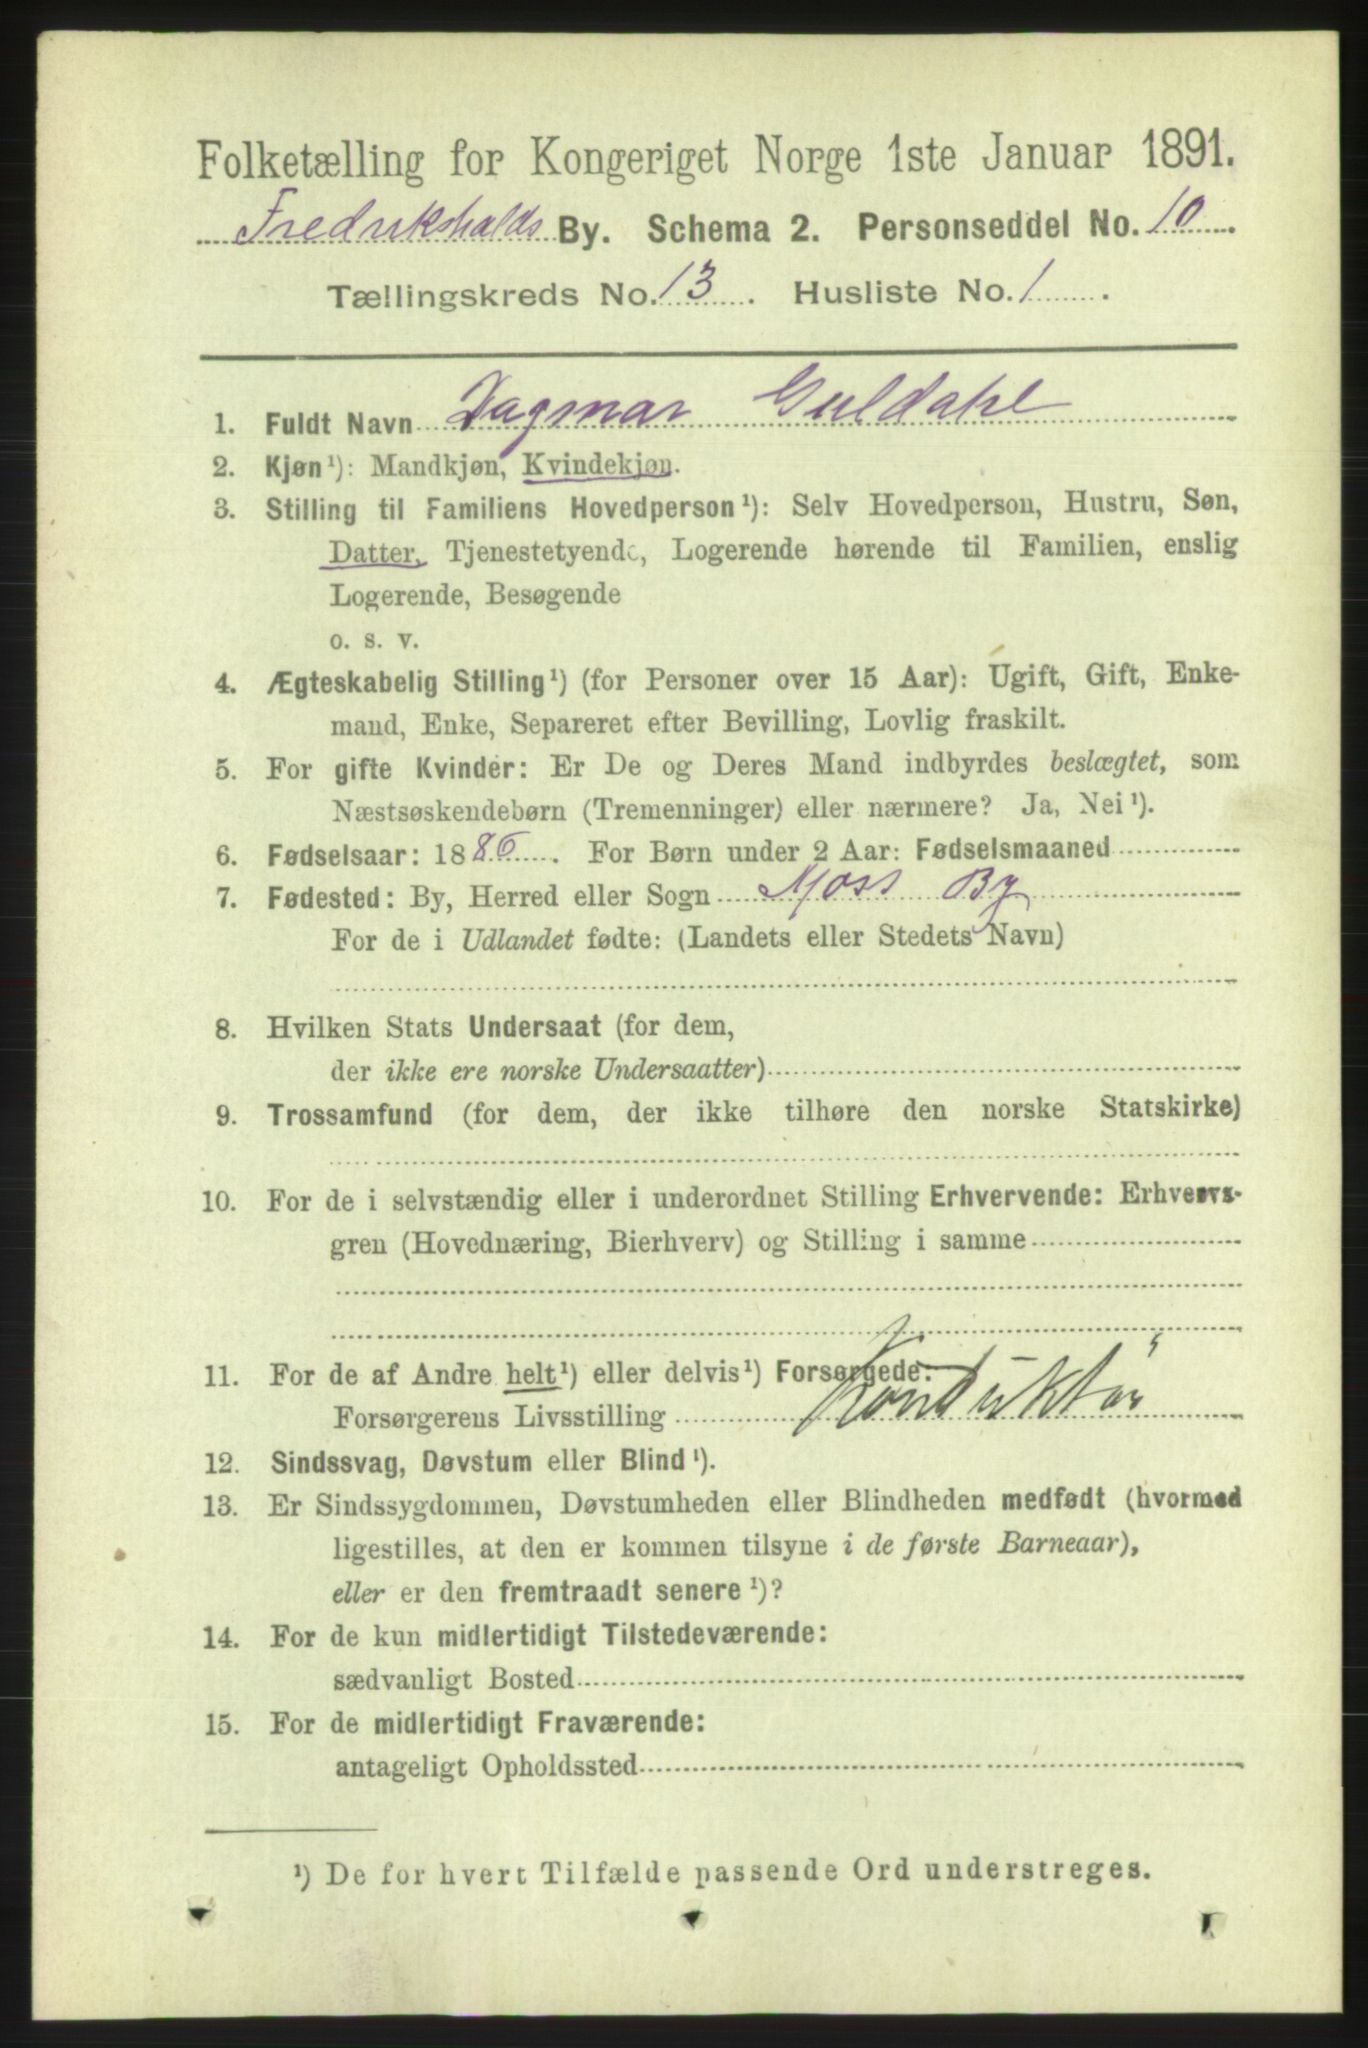 Folketælling for Kongeriget Norge 1ste Januar 1891.
Fredrikshalds By. Schema 2. Personseddel No. 10
Tællingskreds No. 13. Husliste No. 1.
1. Fuldt Navn Dagmar Guldahl
2. Kjøn¹): Mandkjøn, Kvindekjøn.
3. Stilling til Familiens Hovedperson¹): Selv Hovedperson, Hustru, Søn,
Datter, Tjenestetyende, Logerende hørende til Familien, enslig
Logerende, Besøgende
o. s. v.
4. Ægteskabelig Stilling¹) (for Personer over 15 Aar): Ugift, Gift, Enke-
mand, Enke, Separeret efter Bevilling, Lovlig fraskilt.
5. For gifte Kvinder: Er De og Deres Mand indbyrdes beslægtet, som
Næstsøskendebørn (Tremenninger) eller nærmere? Ja, Nei¹).
6. Fødselsaar: 1886. For Børn under 2 Aar: Fødselsmaaned
7. Fødested: By, Herred eller Sogn Moss By
For de i Udlandet fødte: (Landets eller Stedets Navn)
8. Hvilken Stats Undersaat (for dem,
der ikke ere norske Undersaatter)
9. Trossamfund (for dem, der ikke tilhøre den norske Statskirke)
10. For de i selvstændig eller i underordnet Stilling Erhvervende: Erhvervs-
gren (Hovednæring, Bierhverv) og Stilling i samme
11. For de af Andre helt¹) eller delvis¹) Forsørgede:
Forsørgerens Livsstilling Konduktør
12. Sindssvag, Døvstum eller Blind¹).
13. Er Sindssygdommen, Døvstumheden eller Blindheden medfødt (hvormed
ligestilles, at den er kommen tilsyne i de første Barneaar),
eller er den fremtraadt senere¹)?
14. For de kun midlertidigt Tilstedeværende:
sædvanligt Bosted
15. For de midlertidigt Fraværende:
antageligt Opholdssted
¹) De for hvert Tilfælde passende Ord understreges.